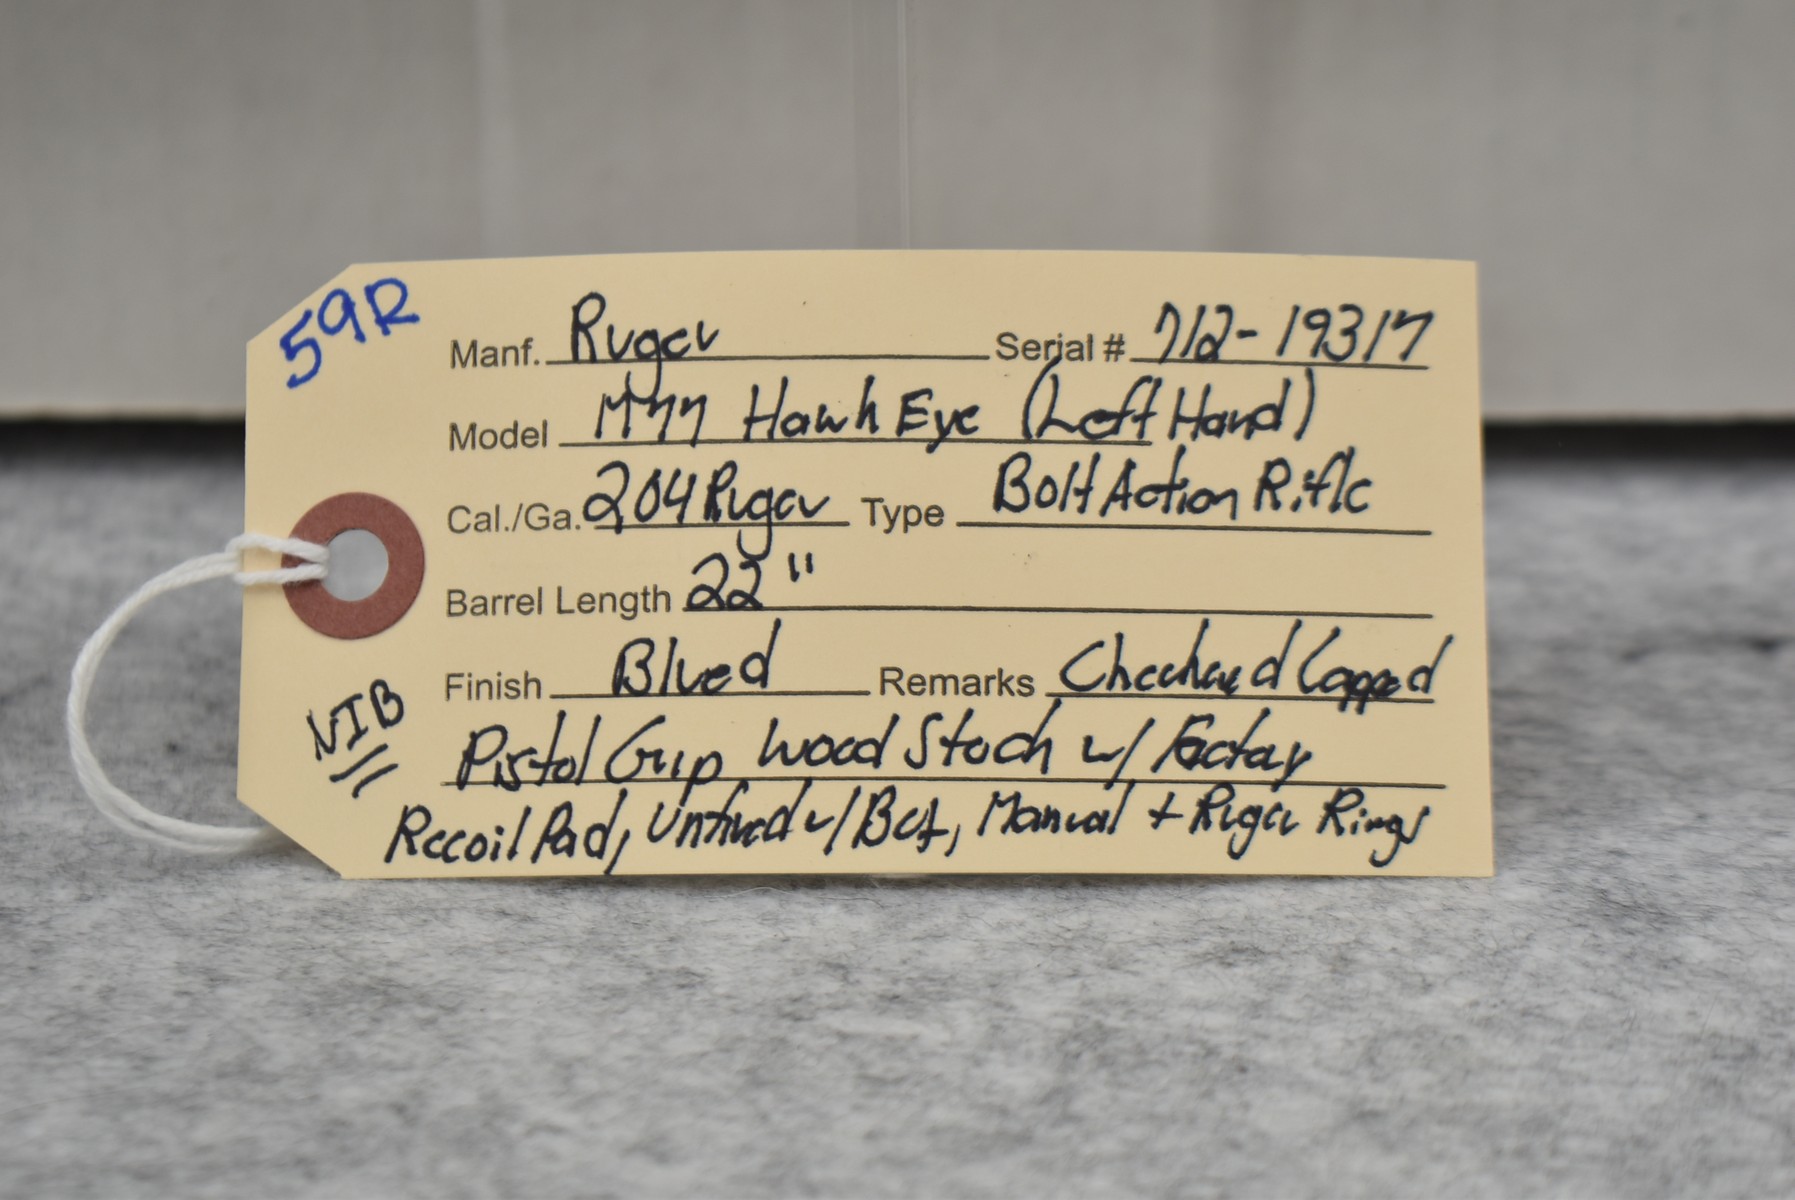 59R
Manf. Ruger Serial # 712-19317
Model M77 HawkEye (Left Hand)
Cal./Ga. 204 Ruger Type Bolt Action Rifle
Barrel Length 22"
Finish Blued Remarks Checkered Capped
NIB
Pistol Grip Wood Stock w/ Factory
Recoil Pad, Unfired w/ Box, Manual + Ruger Rings